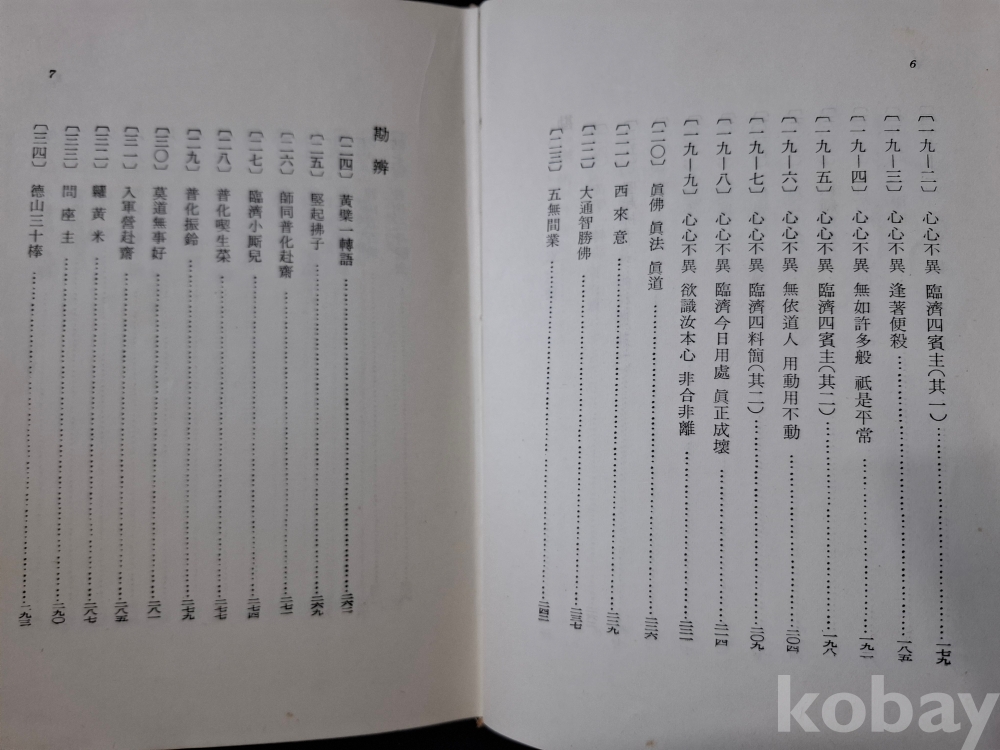 6
〔一九—二〕 心心不異 臨濟四賓主(其一)…………一七九
〔一九—三〕 心心不異 逢著便殺…………一八五
〔一九—四〕 心心不異 無如許多般 祇是平常…………一九一
〔一九—五〕 心心不異 臨濟四賓主(其二)…………一九八
〔一九—六〕 心心不異 無依道人 用動用不動…………二〇四
〔一九—七〕 心心不異 臨濟四料簡(其二)…………二〇九
〔一九—八〕 心心不異 臨濟今日用處 眞正成壞…………二一四
〔一九—九〕 心心不異 欲識汝本心 非合非離…………二二一
〔二〇〕 眞佛 眞法 眞道…………二二六
〔二一〕 西來意…………二二九
〔二二〕 大通智勝佛…………二三七
〔二三〕 五無間業…………二四二
7
勘辨
〔二四〕 黃檗一轉語…………二六二
〔二五〕 竪起拂子…………二六九
〔二六〕 師同普化赴齋…………二七一
〔二七〕 臨濟小厮兒…………二七四
〔二八〕 普化喫生菜…………二七七
〔二九〕 普化振鈴…………二七九
〔三〇〕 莫道無事好…………二八一
〔三一〕 入軍營赴齋…………二八五
〔三二〕 糶黃米…………二八七
〔三三〕 問座主…………二九〇
〔三四〕 德山三十棒…………二九三
kobay